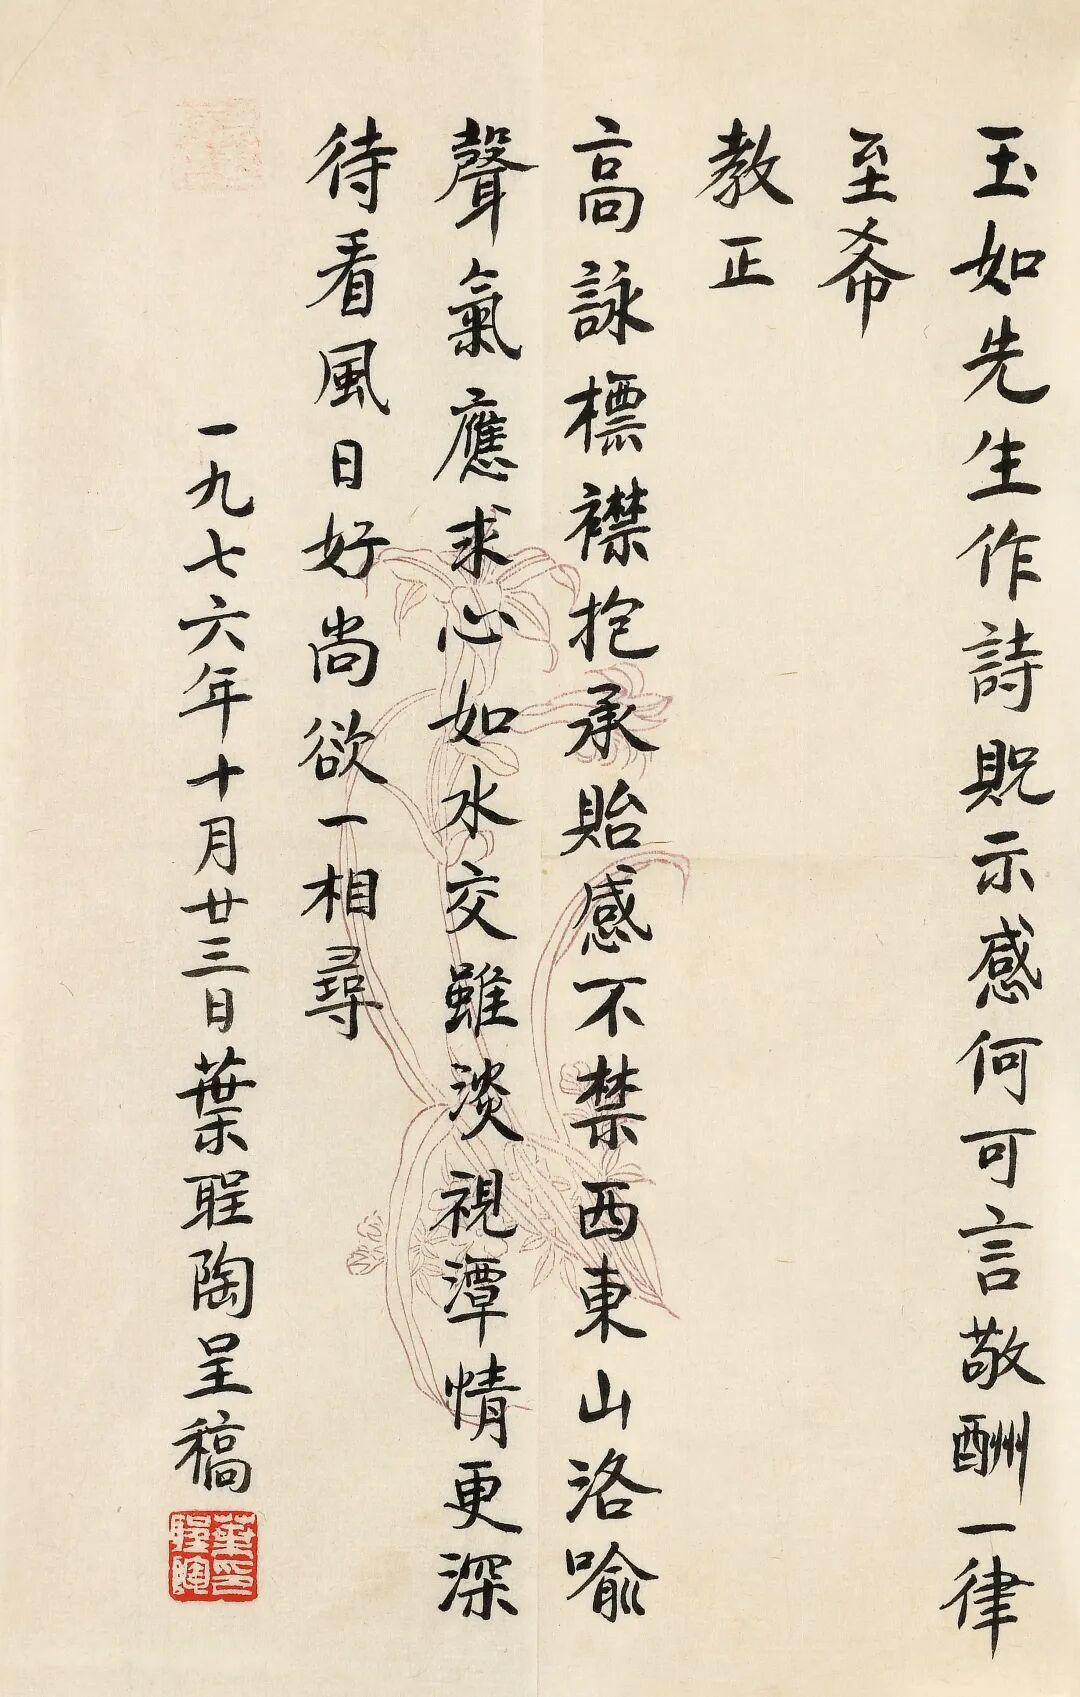 玉如先生作詩貺示感何可言敬酬一律
至希
教正
高詠標襟抱承貽感不禁西東山洛喻
聲氣應求心如水交雖淡視潭情更深
待看風日好尚欲一相尋
一九七六年十月廿三日葉聖陶呈稿
葉聖陶印